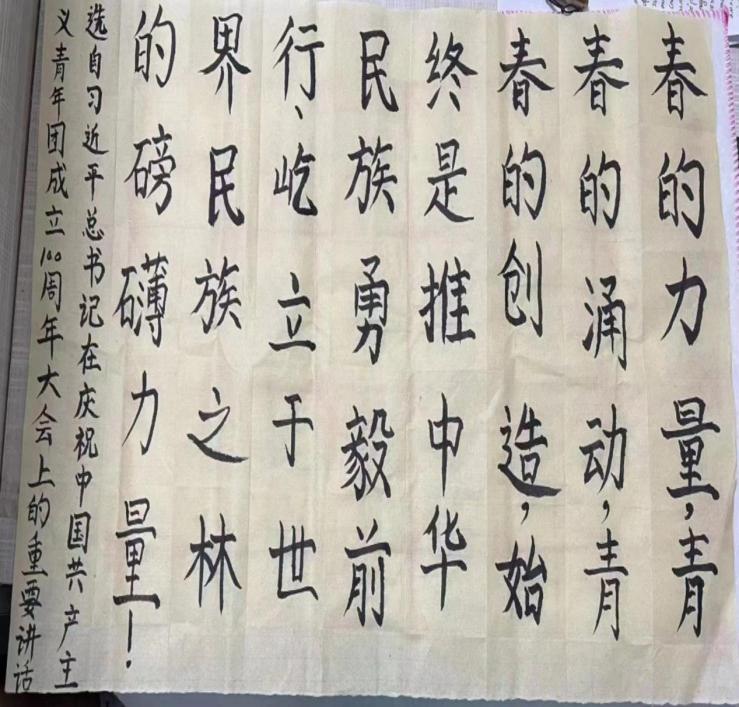 春的力量,青
春的涌动,青
春的创造,始
终是推中华
民族勇毅前
行、屹立于世
界民族之林
的磅礴力量!
选自习近平总书记在庆祝中国共产主
义青年团成立100周年大会上的重要讲话